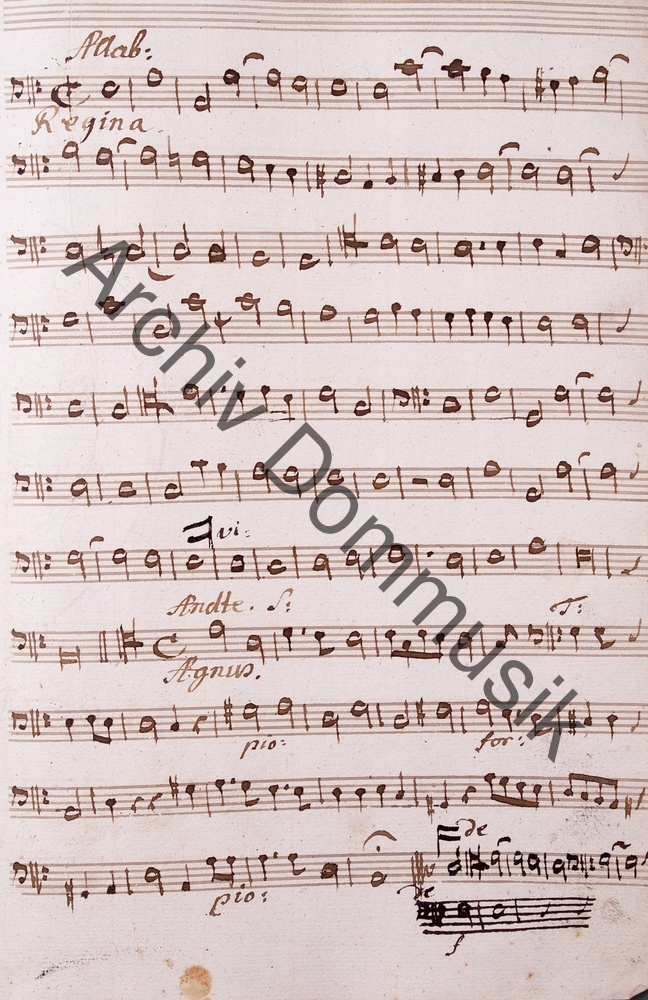 Allab:
Regina.
Archiv Dommusik
vi-
Andte. S:
T:
Agnus.
pio:
for:
de
pio:
de
f